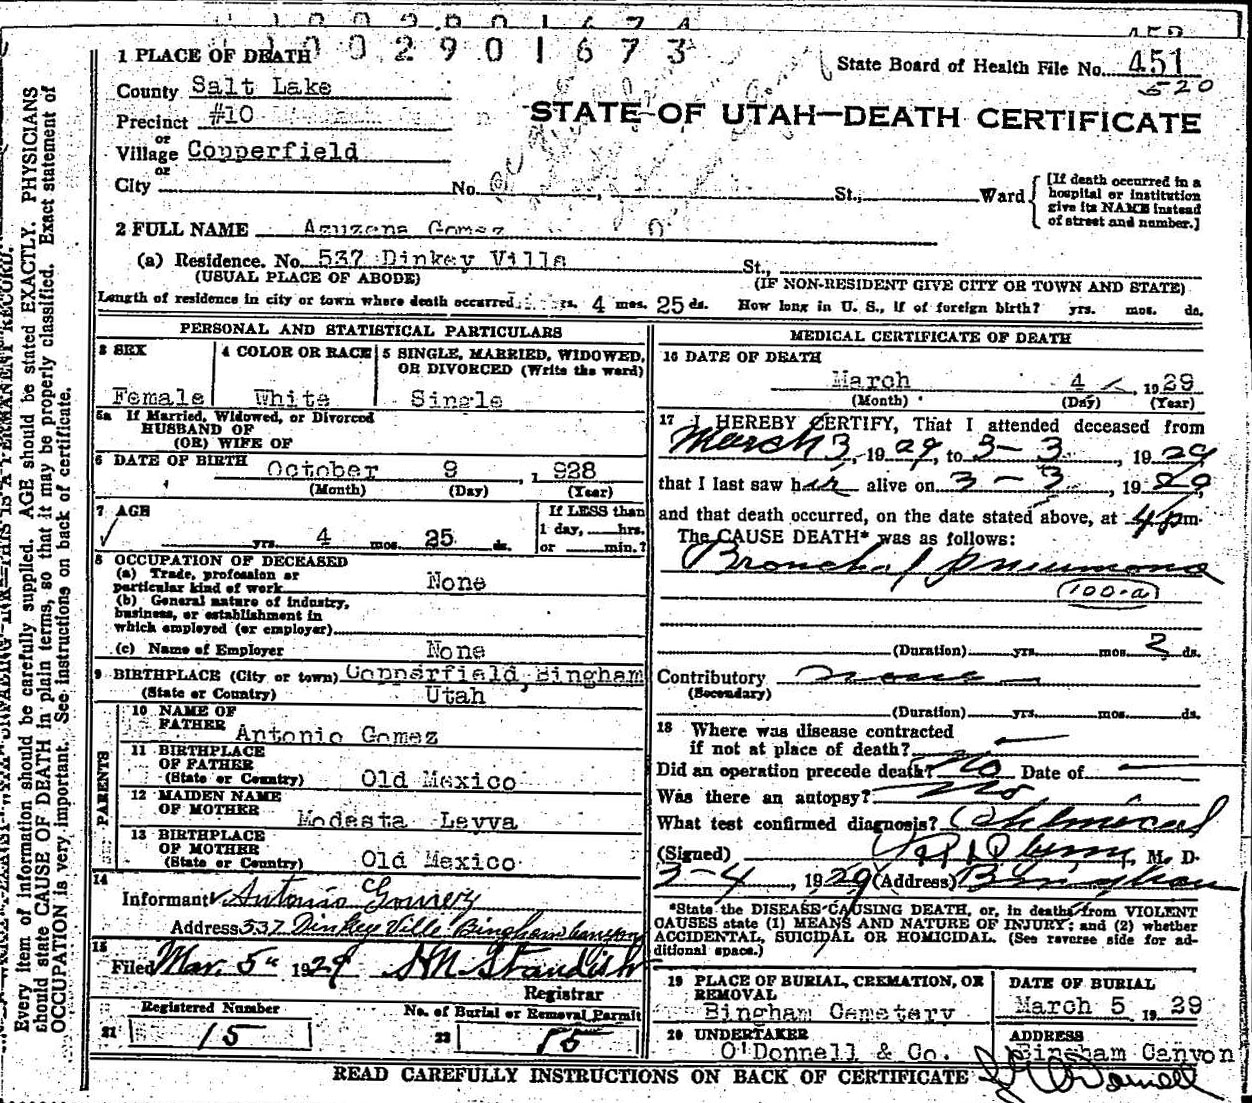 1002901673
1 PLACE OF DEATH
State Board of Health File No. 451
520
County Salt Lake
STATE OF UTAH—DEATH CERTIFICATE
Precinct #10
or
Village Copperfield
or
City No. St., Ward
[If death occurred in a hospital or institution give its NAME instead of street and number.]
2 FULL NAME Asuzena Gomez
(a) Residence. No. 537 Dinkey Ville St.,
(USUAL PLACE OF ABODE) (IF NON-RESIDENT GIVE CITY OR TOWN AND STATE)
Length of residence in city or town where death occurred yrs. 4 mos. 25 ds. How long in U. S., if of foreign birth? yrs. mos. ds.
PERSONAL AND STATISTICAL PARTICULARS
3 SEX
Female
4 COLOR OR RACE
White
5 SINGLE, MARRIED, WIDOWED, OR DIVORCED (Write the word)
Single
5a If Married, Widowed, or Divorced
HUSBAND OF
(OR) WIFE OF
6 DATE OF BIRTH October 9, 1928
(Month) (Day) (Year)
7 AGE
yrs. 4 mos. 25 ds.
If LESS than
1 day, hrs.
or min.?
8 OCCUPATION OF DECEASED
(a) Trade, profession or
particular kind of work None
(b) General nature of industry,
business, or establishment in
which employed (or employer)
(c) Name of Employer None
9 BIRTHPLACE (City or town) Copperfield, Bingham
(State or Country) Utah
PARENTS
10 NAME OF
FATHER Antonio Gomez
11 BIRTHPLACE
OF FATHER
(State or Country) Old Mexico
12 MAIDEN NAME
OF MOTHER Modesta Leyva
13 BIRTHPLACE
OF MOTHER
(State or Country) Old Mexico
14
Informant Antonio Gomez
Address 537 Dinkey Ville Bingham Canyon
15
Filed Mar. 5" 1929 Standish
Registrar
Registered Number
21 15
No. of Burial or Removal Permit
22 15
MEDICAL CERTIFICATE OF DEATH
16 DATE OF DEATH
March 4, 1929
(Month) (Day) (Year)
17 I HEREBY CERTIFY, That I attended deceased from
March 3, 1929, to 3-3, 1929
that I last saw her alive on 3-3, 1929,
and that death occurred, on the date stated above, at 4 pm.
The CAUSE DEATH* was as follows:
Bronchal pneumona
100-a
(Duration) yrs. mos. 2 ds.
Contributory none
(Secondary)
(Duration) yrs. mos. ds.
18 Where was disease contracted
if not at place of death?
Did an operation precede death? No Date of
Was there an autopsy? No
What test confirmed diagnosis?
(Signed) M. D.
3-4, 1929 (Address) Bingham
*State the DISEASE CAUSING DEATH, or, in deaths from VIOLENT
CAUSES state (1) MEANS AND NATURE OF INJURY; and (2) whether
ACCIDENTAL, SUICIDAL OR HOMICIDAL. (See reverse side for additional space.)
19 PLACE OF BURIAL, CREMATION, OR
REMOVAL
Bingham Cemetery
DATE OF BURIAL
March 5 1929
20 UNDERTAKER
O'Donnell & Co.
ADDRESS
Bingham Canyon
O'Donnell
READ CAREFULLY INSTRUCTIONS ON BACK OF CERTIFICATE
Every item of information should be carefully supplied. AGE should be stated EXACTLY. PHYSICIANS
should state CAUSE OF DEATH in plain terms, so that it may be properly classified. Exact statement of
OCCUPATION is very important. See instructions on back of certificate.